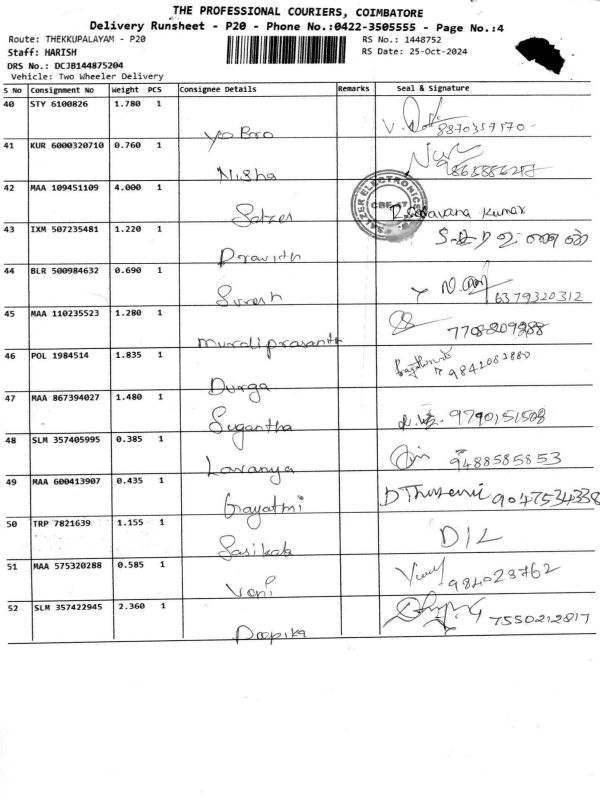 THE PROFESSIONAL COURIERS, COIMBATORE
Delivery Runsheet - P20 - Phone No.:0422-3505555 - Page No.:4
Route: THEKKUPALAYAM - P20 RS No.: 1448752
Staff: HARISH RS Date: 25-Oct-2024
DRS No.: DCJB144875204
Vehicle: Two Wheeler Delivery
S No Consignment No Weight PCS Consignee Details Remarks Seal & Signature
40 STY 6100826 1.780 1 8870357570
41 KUR 6000320710 0.760 1 Nisha
42 MAA 109451109 4.000 1 Salzer R. Saravana Kumar
43 IXM 507235481 1.220 1 Pravith
44 BLR 500984632 0.690 1 Suresh 6379320312
45 MAA 110235523 1.280 1 Muraliprasanth 7708209288
46 POL 1984514 1.835 1 Durga 9842083880
47 MAA 867394027 1.480 1 Sugantha 9790151508
48 SLM 357405995 0.385 1 Lavanya 9488585853
49 MAA 600413907 0.435 1 Gayathri 9047534338
50 TRP 7821639 1.155 1 Sasikala D/L
51 MAA 575320288 0.585 1 Vani 984023762
52 SLM 357422945 2.360 1 Deepika 7550212817